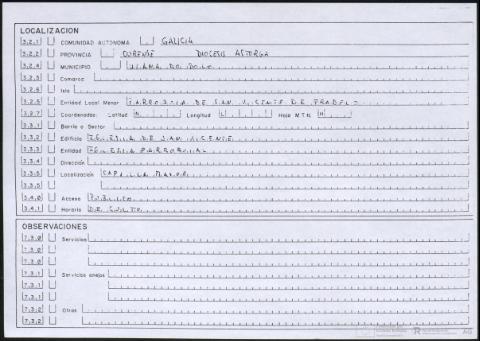 LOCALIZACION
3.2.1 COMUNIDAD AUTONOMA GALICIA
3.2.2 PROVINCIA ORENSE DIOCESIS ASTORGA
3.2.4 MUNICIPIO
3.2.3 Comarca
3.2.6 Isla
3.2.5 Entidad Local Menor PARROQUIA DE SAN VICENTE DE
3.2.7 Coordenadas: Latitud Longitud Hoja M.T.N.
3.3.1 Barrio o Sector
3.3.2 Edificio IGLESIA DE SAN VICENTE
3.3.3 Entidad IGLESIA PARROQUIAL
3.3.4 Dirección
3.3.5 Localización CAPILLA MAYOR
3.3.5
3.4.0 Acceso PUBLICO
3.4.1 Horario DE CULTO
OBSERVACIONES
7.3.0 Servicios
7.3.0
7.3.0
7.3.1 Servicios anejos
7.3.1
7.3.1
7.3.2 Otros
7.3.2